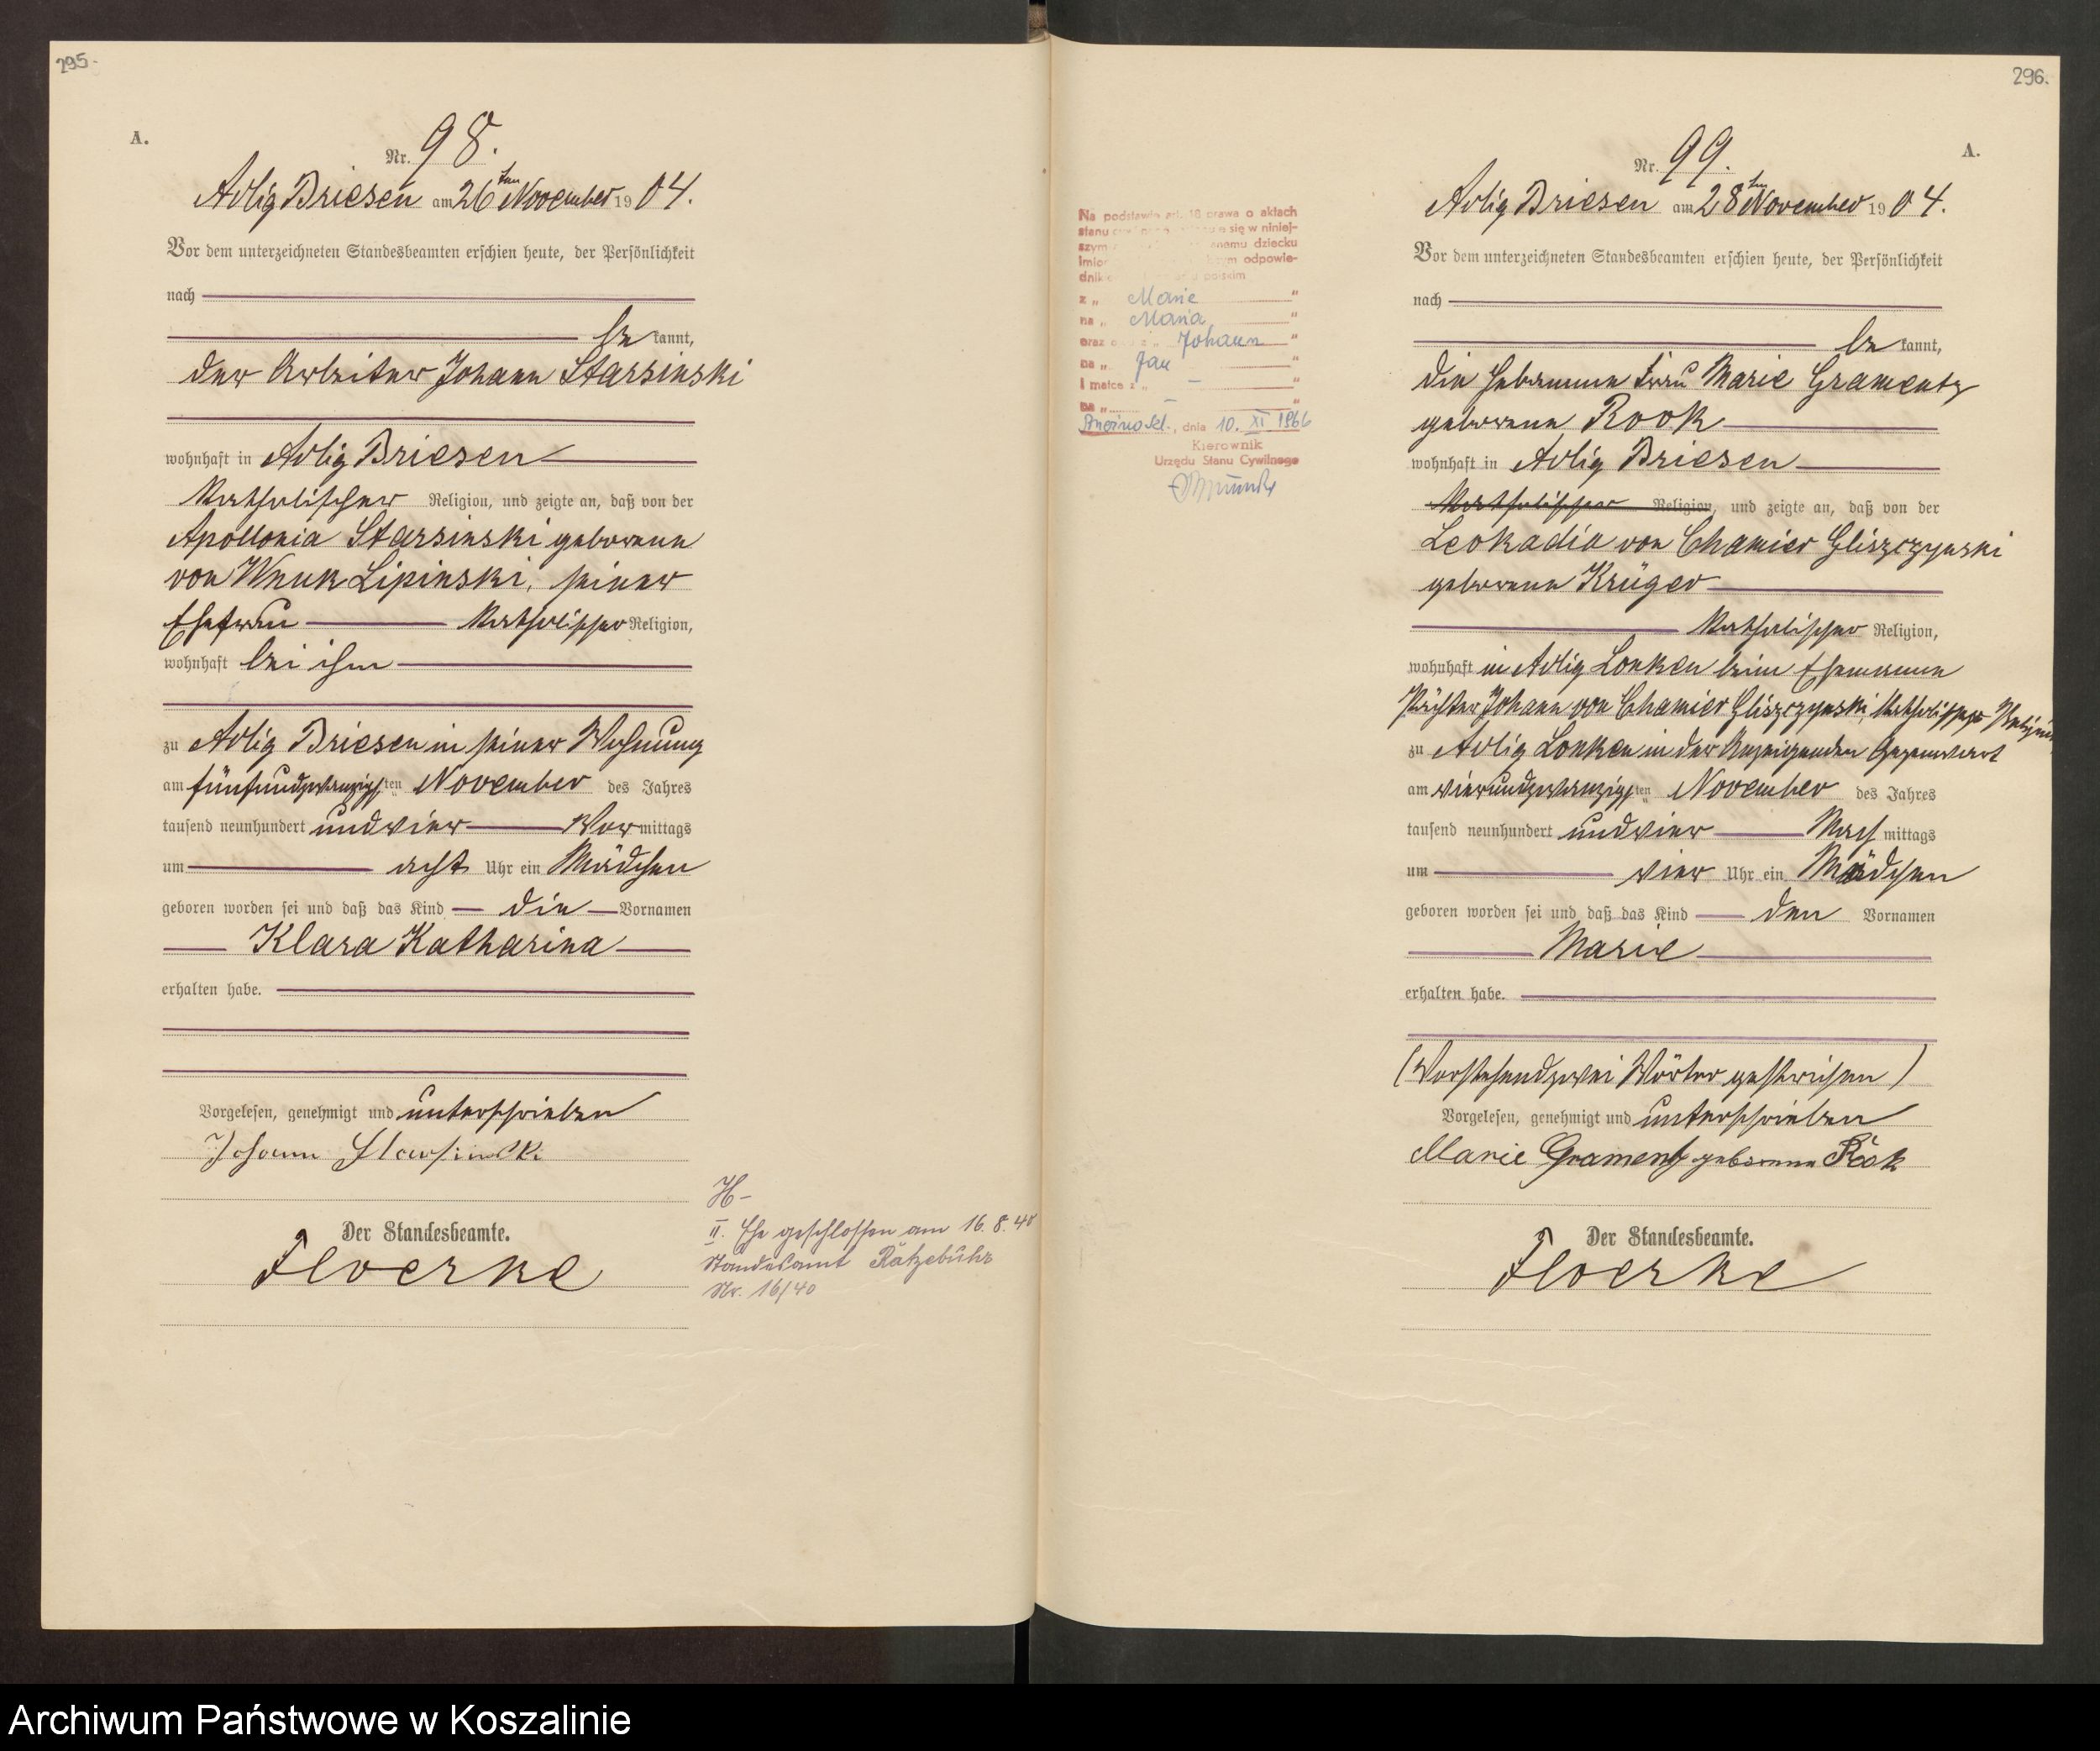 295.
A.
Nr. 98.
Adlig Briesen am 26ten November 1904.
Vor dem unterzeichneten Standesbeamten erschien heute, der Persönlichkeit
nach
be kannt,
der Arbeiter Johann Starsinski
wohnhaft in Adlig Briesen
katholischer Religion, und zeigte an, daß von der
Apollonia Starsinski geborene
von Wnuk Lipinski, seiner
Ehefrau katholischer Religion,
wohnhaft bei ihm
zu Adlig Briesen in seiner Wohnung
am fünfundzwanzigsten November des Jahres
tausend neunhundert und vier Vor mittags
um acht Uhr ein Mädchen
geboren worden sei und daß das Kind die Vornamen
Klara Katharina
erhalten habe.
Vorgelesen, genehmigt und unterschrieben
Johann Starsinski
Der Standesbeamte.
Floerke
H-
II. Ehe geschlossen am 16.8.40
Standesamt Ratzebuhr
Nr. 16/40
296.
A.
Na podstawie art. 18 prawa o aktach
stanu się w niniej-
szym dziecku
odpowie-
polskim
z „ Marie "
na „ Maria "
oraz Johann "
na „ Jan "
i matce z „ – "
na „ – "
dnia 10. XI 1966
Kierownik
Urzędu Stanu Cywilnego
Nr. 99.
Adlig Briesen am 28ten November 1904.
Vor dem unterzeichneten Standesbeamten erschien heute, der Persönlichkeit
nach
be kannt,
die Hebamme Frau Marie Gramentz
geborene Rook
wohnhaft in Adlig Briesen
katholischer Religion, und zeigte an, daß von der
Leokadia von Chamier Gliszczynski
geborene Krüger
katholischer Religion,
wohnhaft in Adlig Lonken beim Ehemanne
Pächter Johann von Chamier Gliszczynski, katholischer Religion
zu Adlig Lonken in der Anzeigenden Gegenwart
am vierundzwanzigsten November des Jahres
tausend neunhundert und vier Nach mittags
um vier Uhr ein Mädchen
geboren worden sei und daß das Kind den Vornamen
Marie
erhalten habe.
(Vorstehend zwei Wörter gestrichen)
Vorgelesen, genehmigt und unterschrieben
Marie Gramentz geborene Rook
Der Standesbeamte.
Floerke
Archiwum Państwowe w Koszalinie